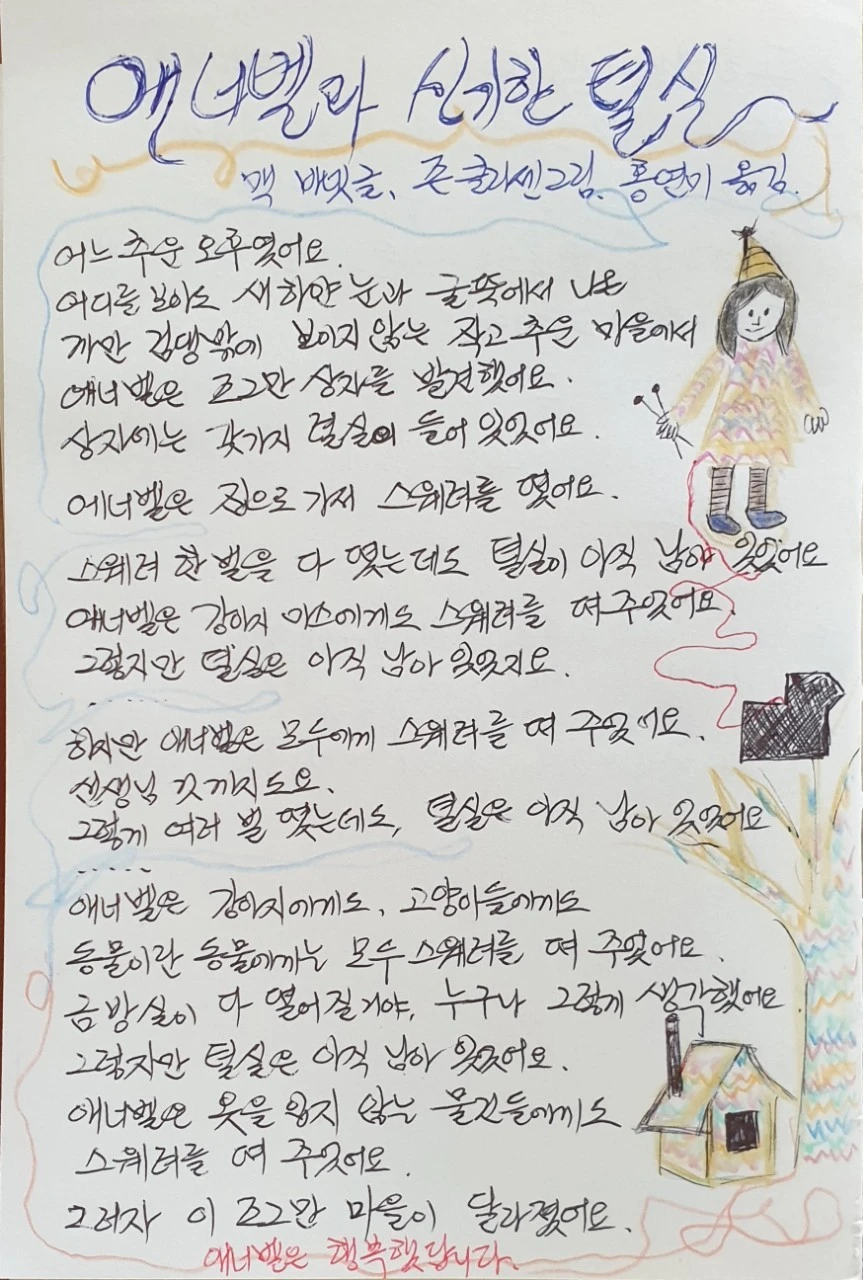 애너벨과 신기한 털실
맥 바넷글, 존 클라센그림, 홍연미 옮김.
어느 추운 오후였어요.
어디를 보아도 새하얀 눈과 굴뚝에서 나온
까만 검댕밖에 보이지 않는 작고 추운 마을에서
애너벨은 조그만 상자를 발견했어요.
상자에는 갖가지 털실이 들어 있었어요.
애너벨은 집으로 가져 스웨터를 떴어요.
스웨터 한 벌을 다 떴는데도 털실이 아직 남아 있었어요
애너벨은 강아지 마스에게도 스웨터를 떠 주었어요.
그렇지만 털실은 아직 남아 있었지요.
......
하지만 애너벨은 모두에게 스웨터를 떠 주었어요.
선생님 것까지도요.
그렇게 여러 벌 떴는데도, 털실은 아직 남아 있었어요
.....
애너벨은 강아지에게도, 고양이들에게도
동물이란 동물에게는 모두 스웨터를 떠 주었어요.
금방 실이 다 떨어질거야, 누구나 그렇게 생각했어요.
그렇지만 털실은 아직 남아 있었어요.
애너벨은 옷을 입지 않는 물건들에게도
스웨터를 떠 주었어요.
그러자 이 조그만 마을이 달라졌어요.
애너벨은 행복했답니다.